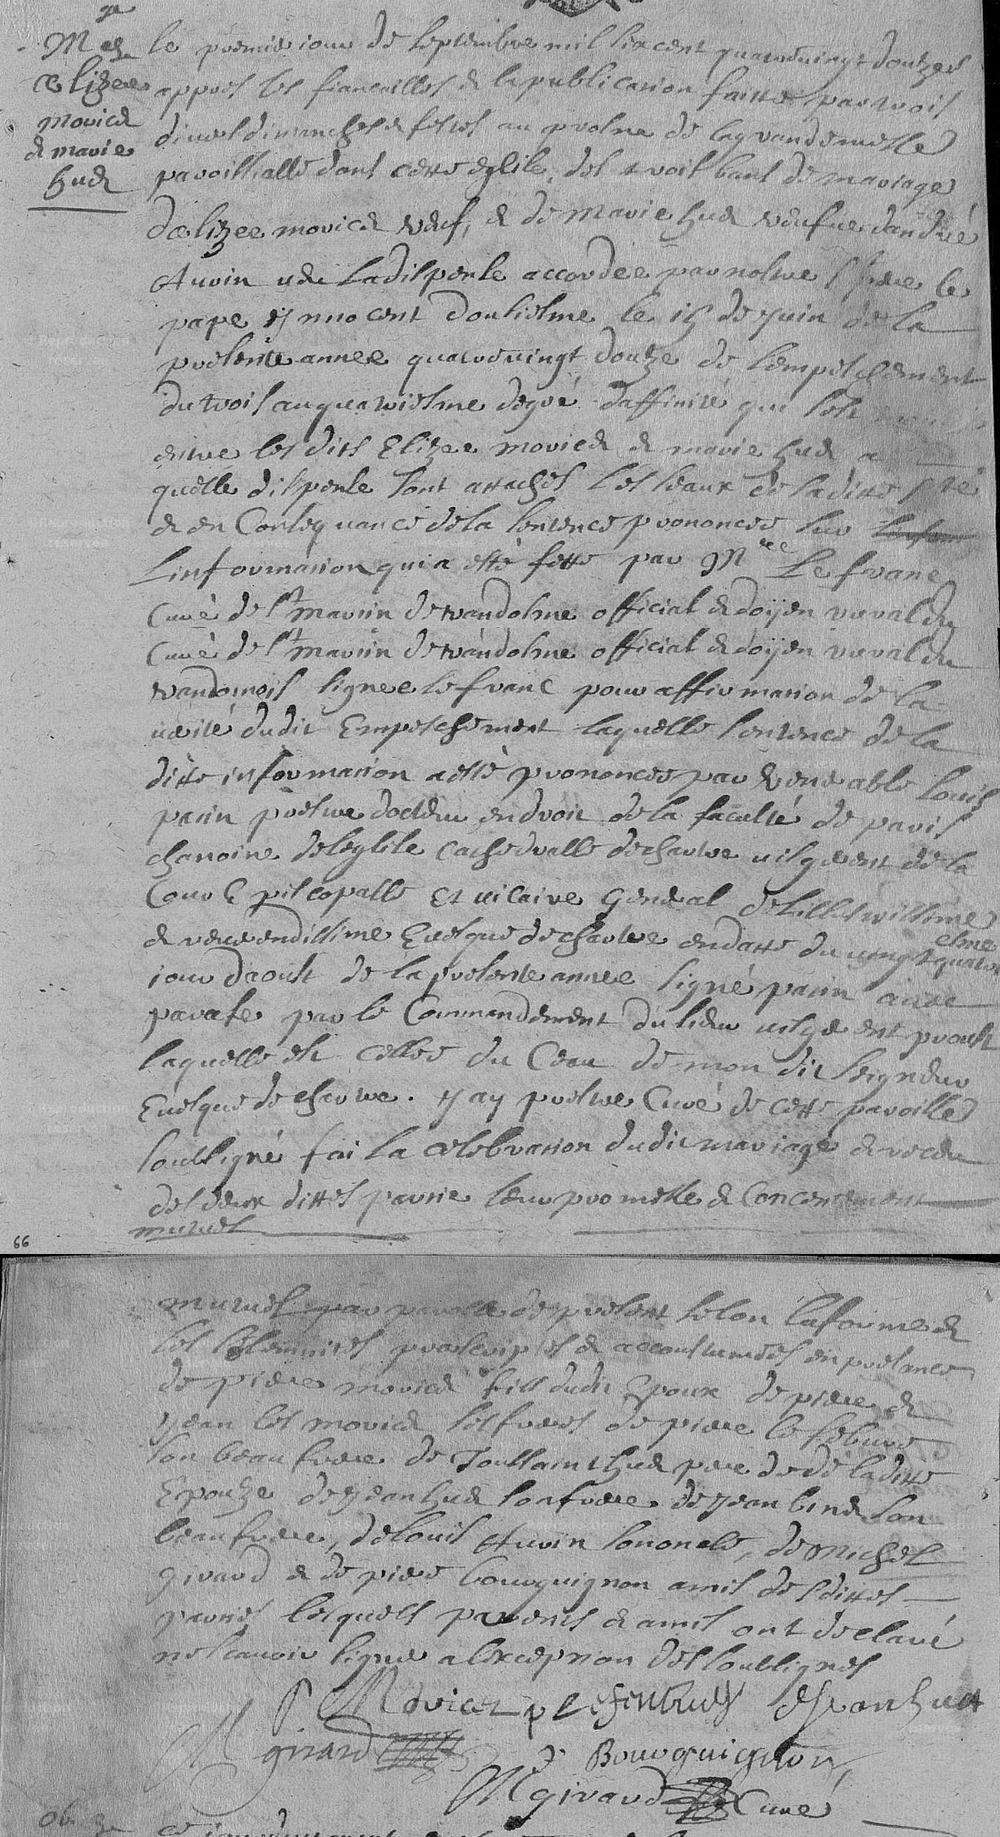 M ge
d elizee
moricet
& marie
huet
le premier iour de septembre mil six cent quatrevingt douzes
appres les fiancailles & la publication faitte par trois
divers dimanches & festes au prosne de la grande messe
paroissialle dans cette eglise, des trois bans de mariage
delizee moricet veuf, & de marie huet veufve dandré
Auvin veu la dispense accordee par nostre st pere le
pape ynnocent douziesme le 15 de juin de la
presente annee quatrevingt douze de lempeschement
du trois au quatriesme degré daffinité qui sest
entre les dits Elizee moricet & marie huet a
quelle dispense sont attachés les seaux de laditte
& en Consequance de la sentence prononcee sur
Linformation qui a esté fette par Mre Lefranc
Curé de st martin de vandosme official & doyen rural du
Curé de st martin de vandosme official & doyen rural du
vandomois signee lefranc pour affirmation de la
verité dudit Empeschement laquelle sentence de la
ditte information a esté prononcee par venerable Louis
patin prestre docteur en droit de la faculté de paris
chanoine de leglise cathedralle de chartre visgerent de la
Cour Episcopalle et vicaire General de lillustrissime
& reverendissime Evesque de chartre en datte du vingt quatriesme
iour daoust de la presente annee signé patin avec
parafe par le Commandement du sieur visgerent
laquelle est cellee du Ceau de mon dit seigneur
Evesque de chartre. j ay prestre Curé de cette paroisse
soussigné fai la celebration dudit mariage & receu
des deux dittes partie leur promesse & Concentement
mutuel
mutuel par parolle de present selon la forme &
les solemnités prescriptes & accoustumées en presence
de pierre moricet fils dudit Epoux de pierre &
jean les moricet ses freres de pierre lefebure
son beau frere de Toussaint huet pere de laditte
Epouze de jean huet son frere de jean binet son
beau frere, de louis Auvin son oncle, de michel
girard & de pierre bourguignon amis desdittes
parties lesquels parents & amis ont declaré
ne scavoir signer a lexception des soussignes
P Moricet p Lefebure Jean huet
M girard P Bourguignon
M girard Curé